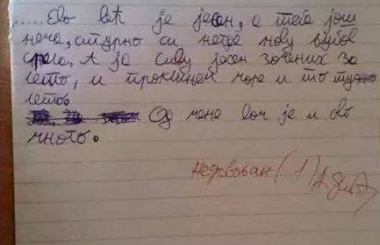 .....Ево већ је јесен, а тебе још
нема, сигурно си негде нову љубов
срела, А ја сиву јесен зовених за
лето, и проклињем море и то
летов
Од мене доч је и ово
много.
Недовољан (1)